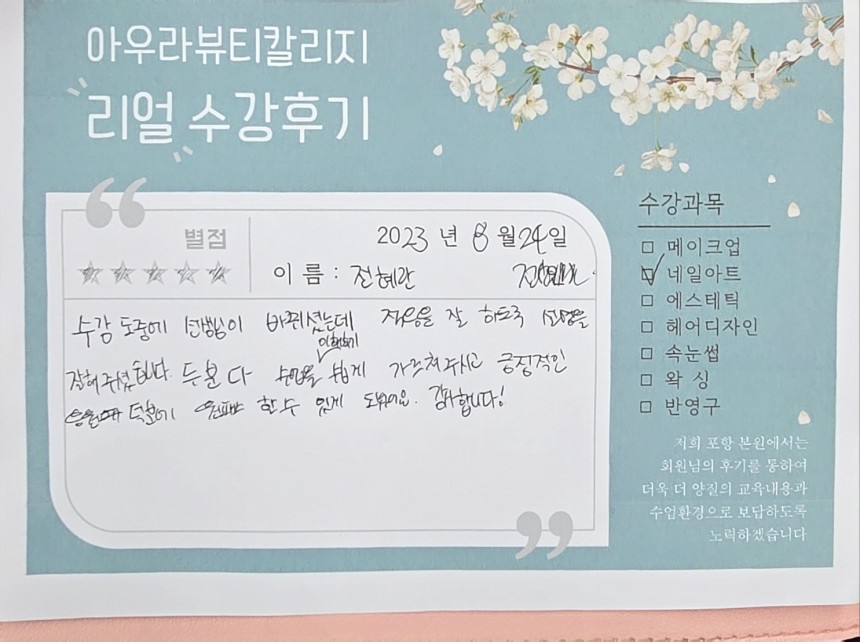 아우라뷰티칼리지
리얼 수강후기
별점
2023 년 8 월 24 일
이 름 : 전혜란
수강 도중에 선생님이 바뀌셨는데 적응을 잘 하도록 설명을
잘해주셨습니다. 두분 다 수업을 이해하기 쉽게 가르쳐주시고 긍정적인
덕분에 할 수 있게 되었어요. 감사합니다!
수강과목
□ 메이크업
☑ 네일아트
□ 에스테틱
□ 헤어디자인
□ 속눈썹
□ 왁 싱
□ 반영구
저희 포항 본원에서는
회원님의 후기를 통하여
더욱 더 양질의 교육내용과
수업환경으로 보답하도록
노력하겠습니다